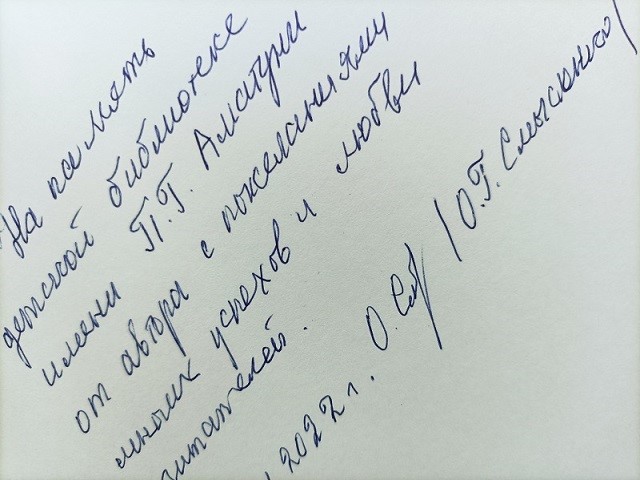 На память
детской библиотеке
имени П.Г. Аматуни
от автора с пожеланиями
многих успехов и любви
читателей.
2022 г. О. /О.Г.